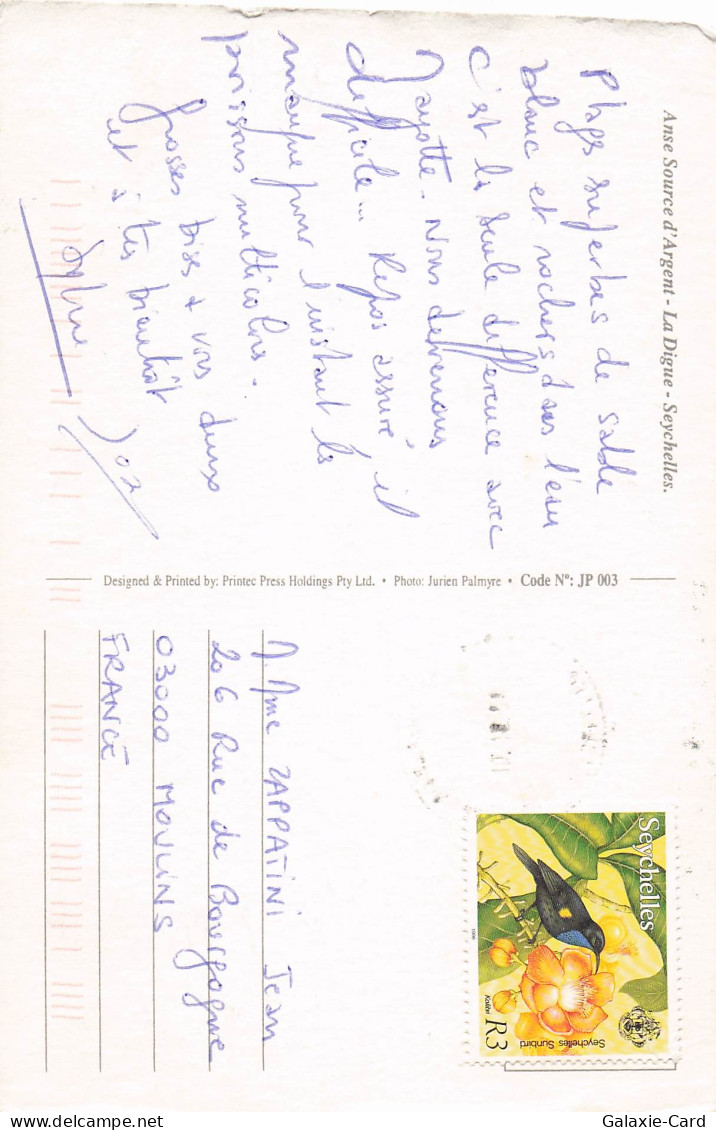 Anse Source d'Argent - La Digue - Seychelles.
Plages superbes de sable
blanc et rochers dans l'eau
c'est la seule différence avec
Mayotte. Nous devenons
difficile... Repos assuré, il
manque pour l'instant les
poissons multicolores.
Grosses bises à vous deux
et à très bientôt
Sylvie
Designed & Printed by: Printec Press Holdings Pty Ltd. • Photo: Jurien Palmyre • Code Nº: JP 003
Seychelles
Seychelles Sunbird
R3
Kolibri
1996
M. Mme ZAPPATINI Jean
206 Rue de Bourgogne
03000 MOULINS
FRANCE
Galaxie-Card